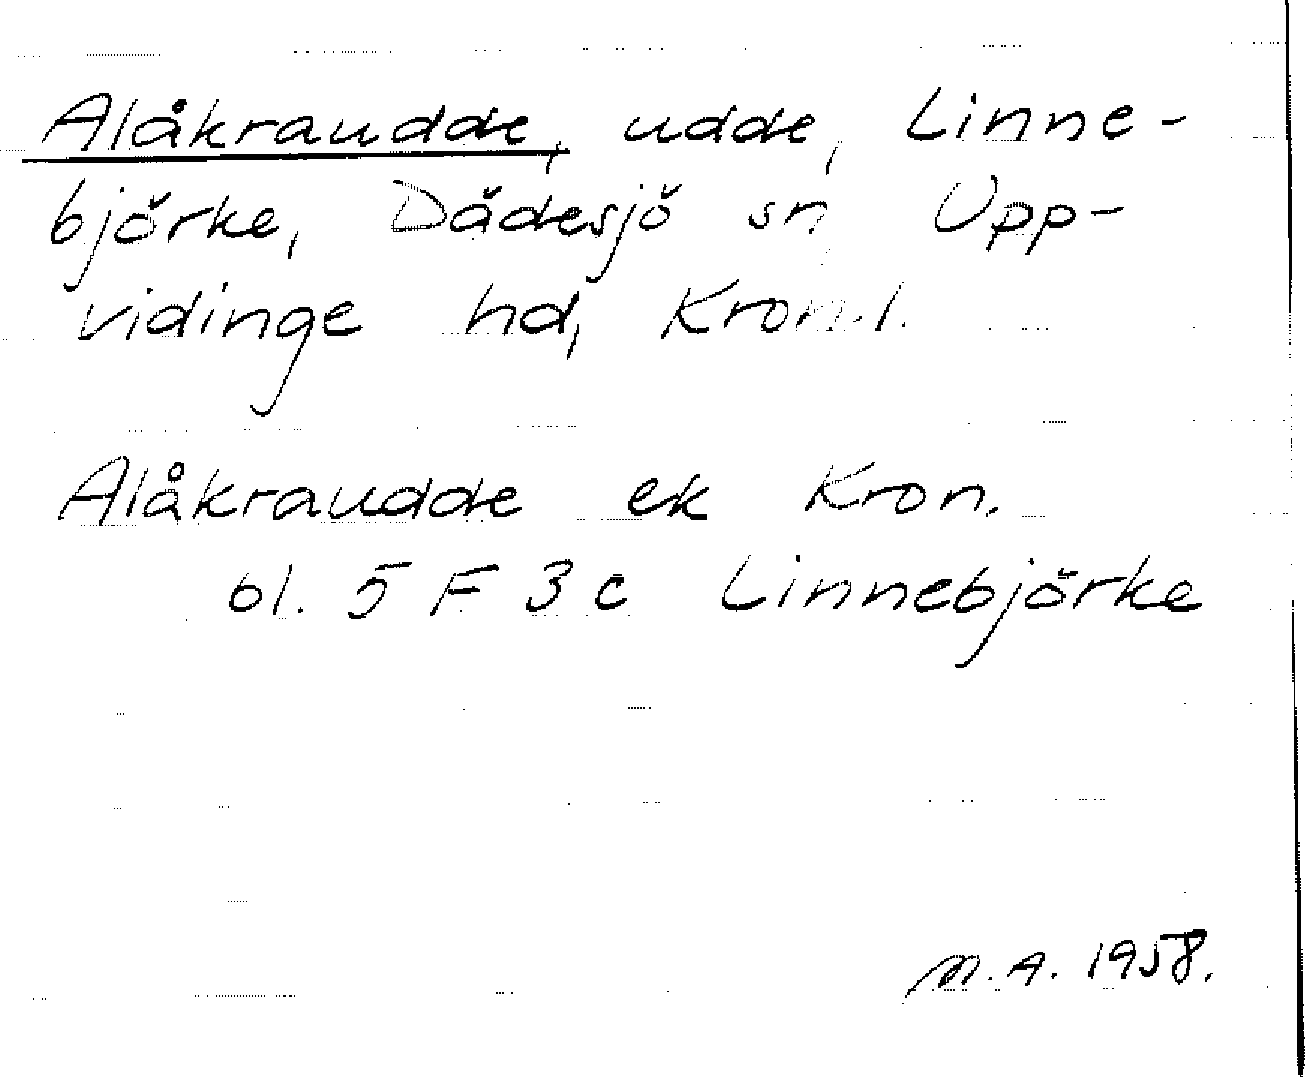 Alåkraudde, udde, Linne-
björke, Dädesjö sn, Upp-
vidinge hd, Kron.l.
Alåkraudde ek Kron.
bl. 5 F 3 c Linnebjörke
M.A. 1958.